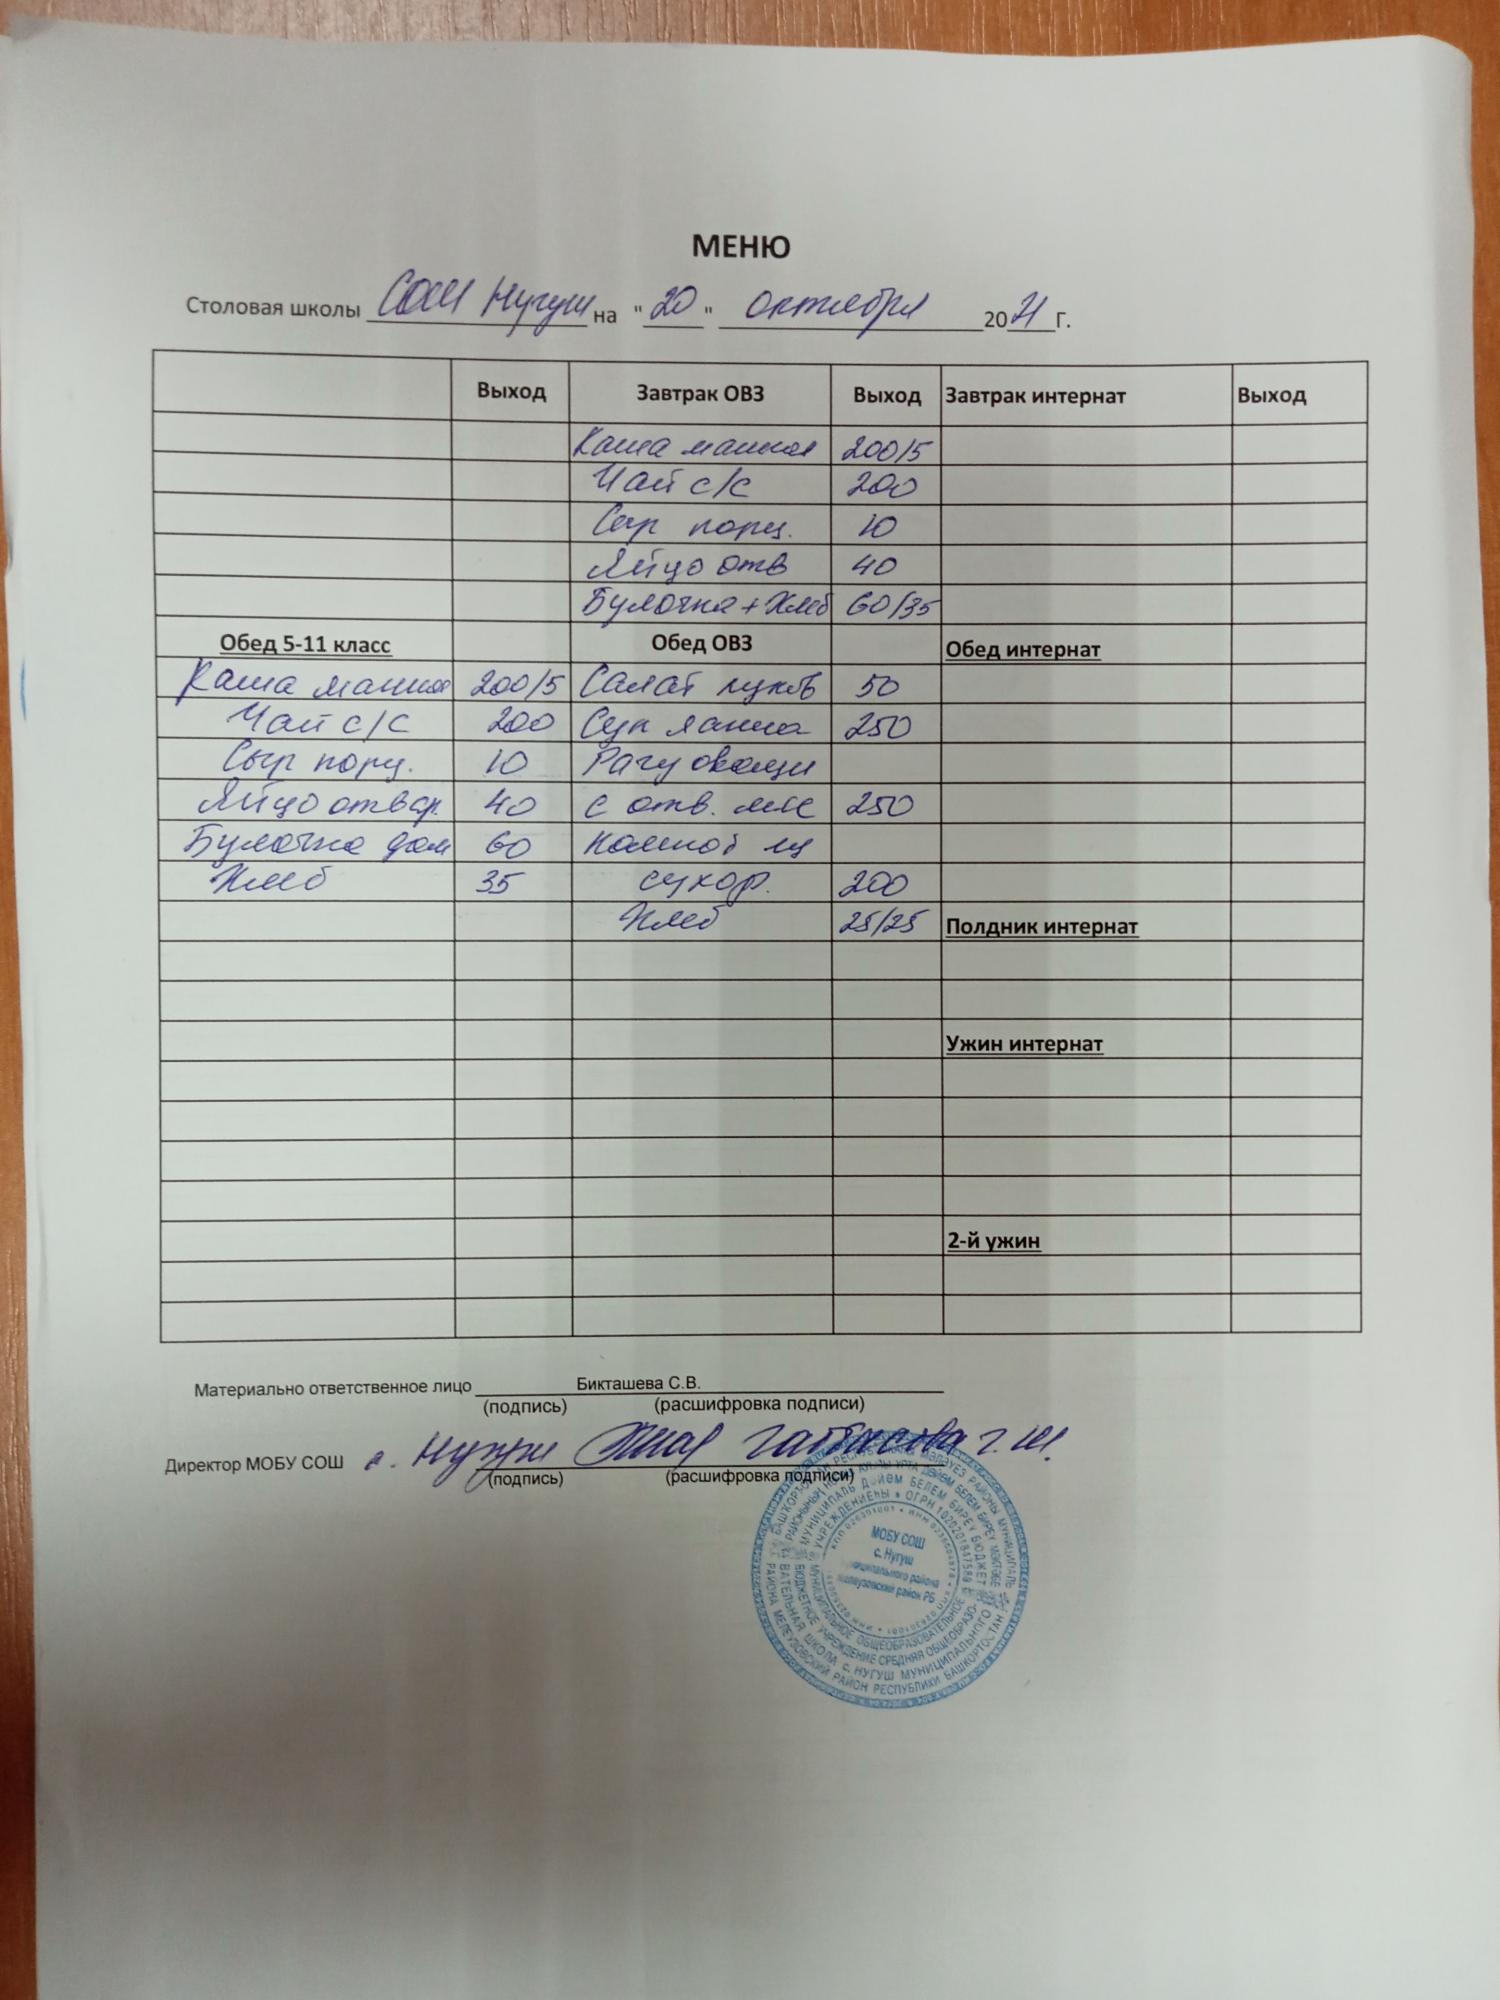 МЕНЮ
Столовая школы СОШ Нугуш на "20" октября 2021 Г.
Выход Завтрак ОВЗ Выход Завтрак интернат Выход
Каша манная 200/5
Чай с/с 200
Сыр порц. 10
Яйцо отв 40
Булочка + Хлеб 60/35
Обед 5-11 класс Обед ОВЗ Обед интернат
Каша манная 200/5 Салат 50
Чай с/с 200 Суп лапша 250
Сыр порц. 10 Рагу овощи
Яйцо отвар. 40 с отв. мяс 250
Булочка дом 60 Компот
Хлеб 35 сухофр. 200
Хлеб 25/25 Полдник интернат
Ужин интернат
2-й ужин
Материально ответственное лицо Бикташева С.В.
(подпись) (расшифровка подписи)
Директор МОБУ СОШ с. Нугуш Г.Ш.
(подпись) (расшифровка подписи)
МОБУ СОШ
с. Нугуш
муниципального района
Мелеузовский район РБ